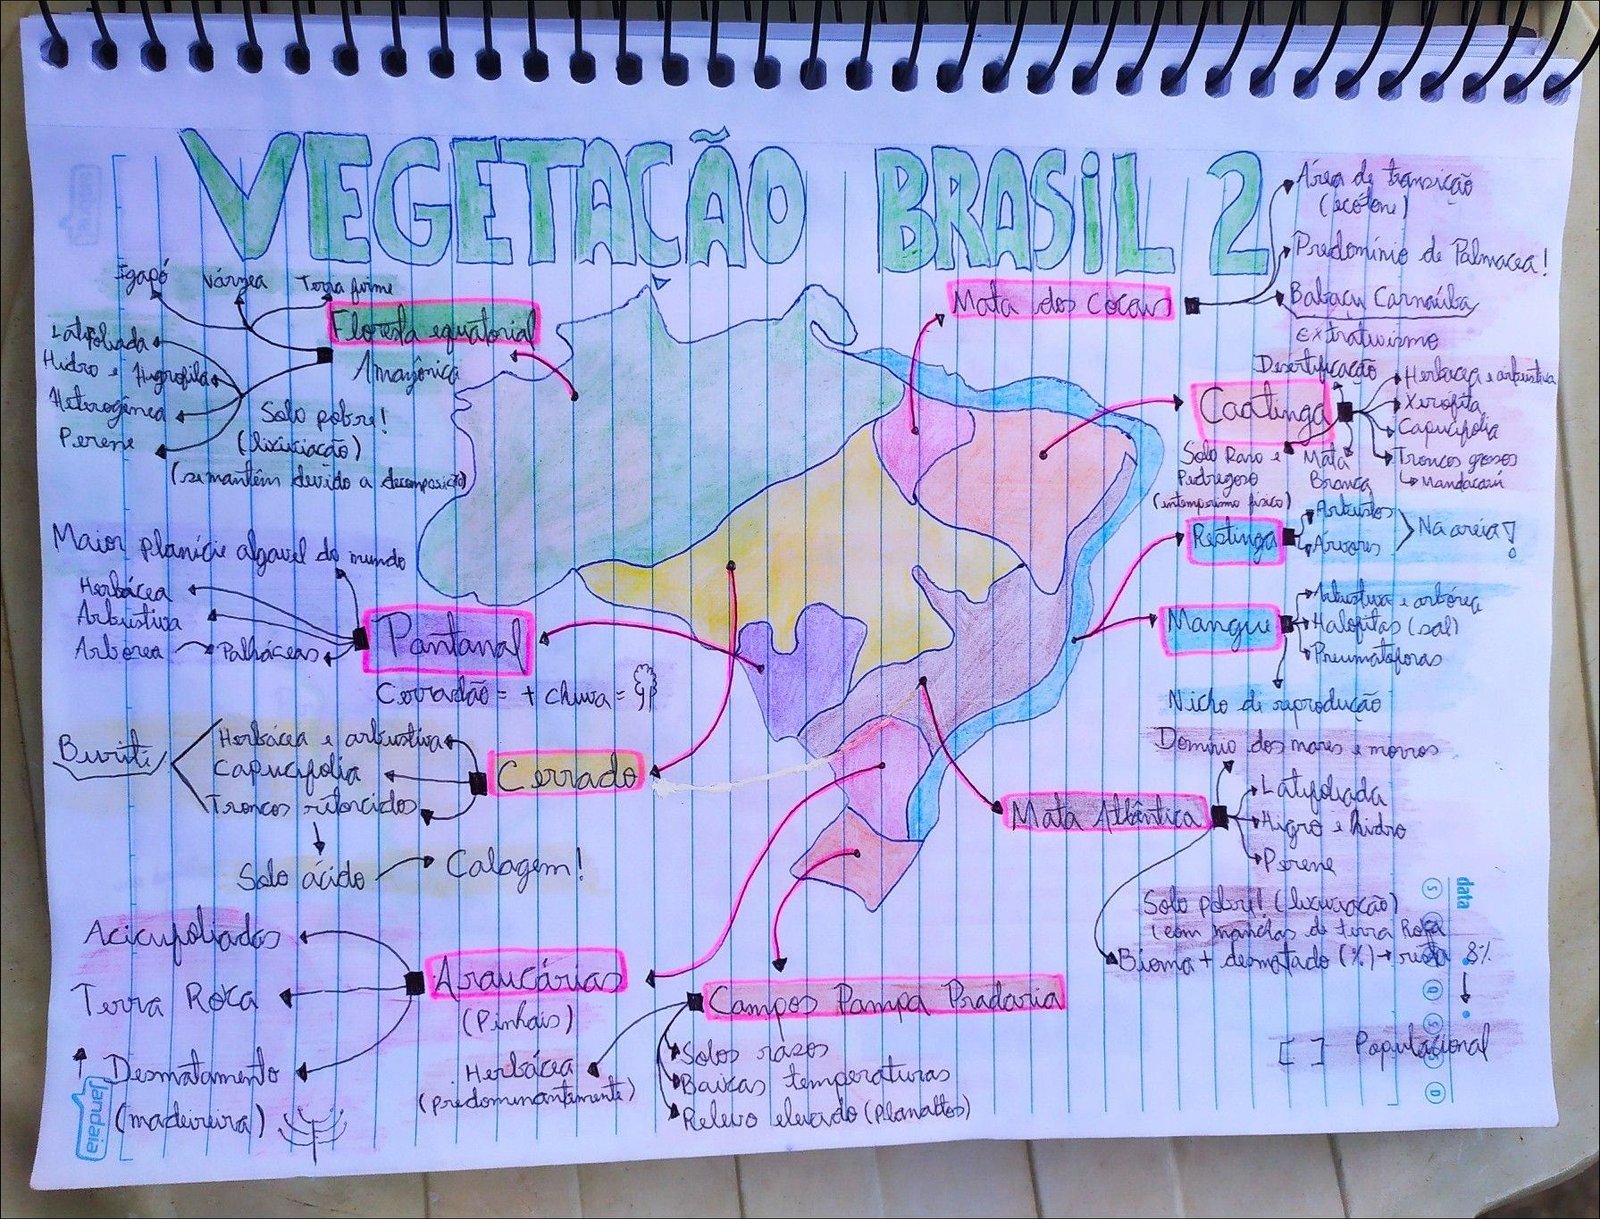 VEGETAÇÃO BRASIL 2
Igapó
Várzea
Terra firme
Floresta equatorial
Amazônica
Latifoliada
Hidro e Higrofila
Heterogênea
Perene
Solo pobre!
(lixiviação)
(se mantém devido a decomposição)
Maior planície algavel do mundo
Herbácea
Arbustiva
Arbórea
Palháceas
Pantanal
Cerradão = + chuva =
Buriti
Herbácea e arbustiva
Capucifolia
Troncos retorcidos
Cerrado
Solo ácido
Calagem!
Acicufoliadas
Terra Roxa
Desmatamento
(madeireira)
Araucárias
(Pinhais)
Campos Pampa Pradaria
Herbácea
(predominantemente)
Solos razos
Baixas temperaturas
Relevo elevado (Planaltos)
Mata dos Cocais
Área de transição
(ecótone)
Predomínio de Palmacea!
Babaçu Carnaúba
Extrativismo
Desertificação
Caatinga
Herbácea e arbustiva
Xerofita
Capucifolia
Troncos grosos
Mandacaru
Solo Razo e
Pedregoso
(intemperismo físico)
Mata
Branca
Restinga
Arbustos
Árvores
Na areia!
Mangue
Arbustiva e arbórea
Halofitas (sal)
Pneumatoforas
Nicho de reprodução
Domínio dos mares e morros
Mata Atlântica
Latifoliada
Higro e hidro
Perene
Solo pobre! (lixiviação)
(com manchas de terra Roxa
Bioma + desmatado (%) → resta 8%
[ ] Populacional
data
S
Q
S
D
Jandaia